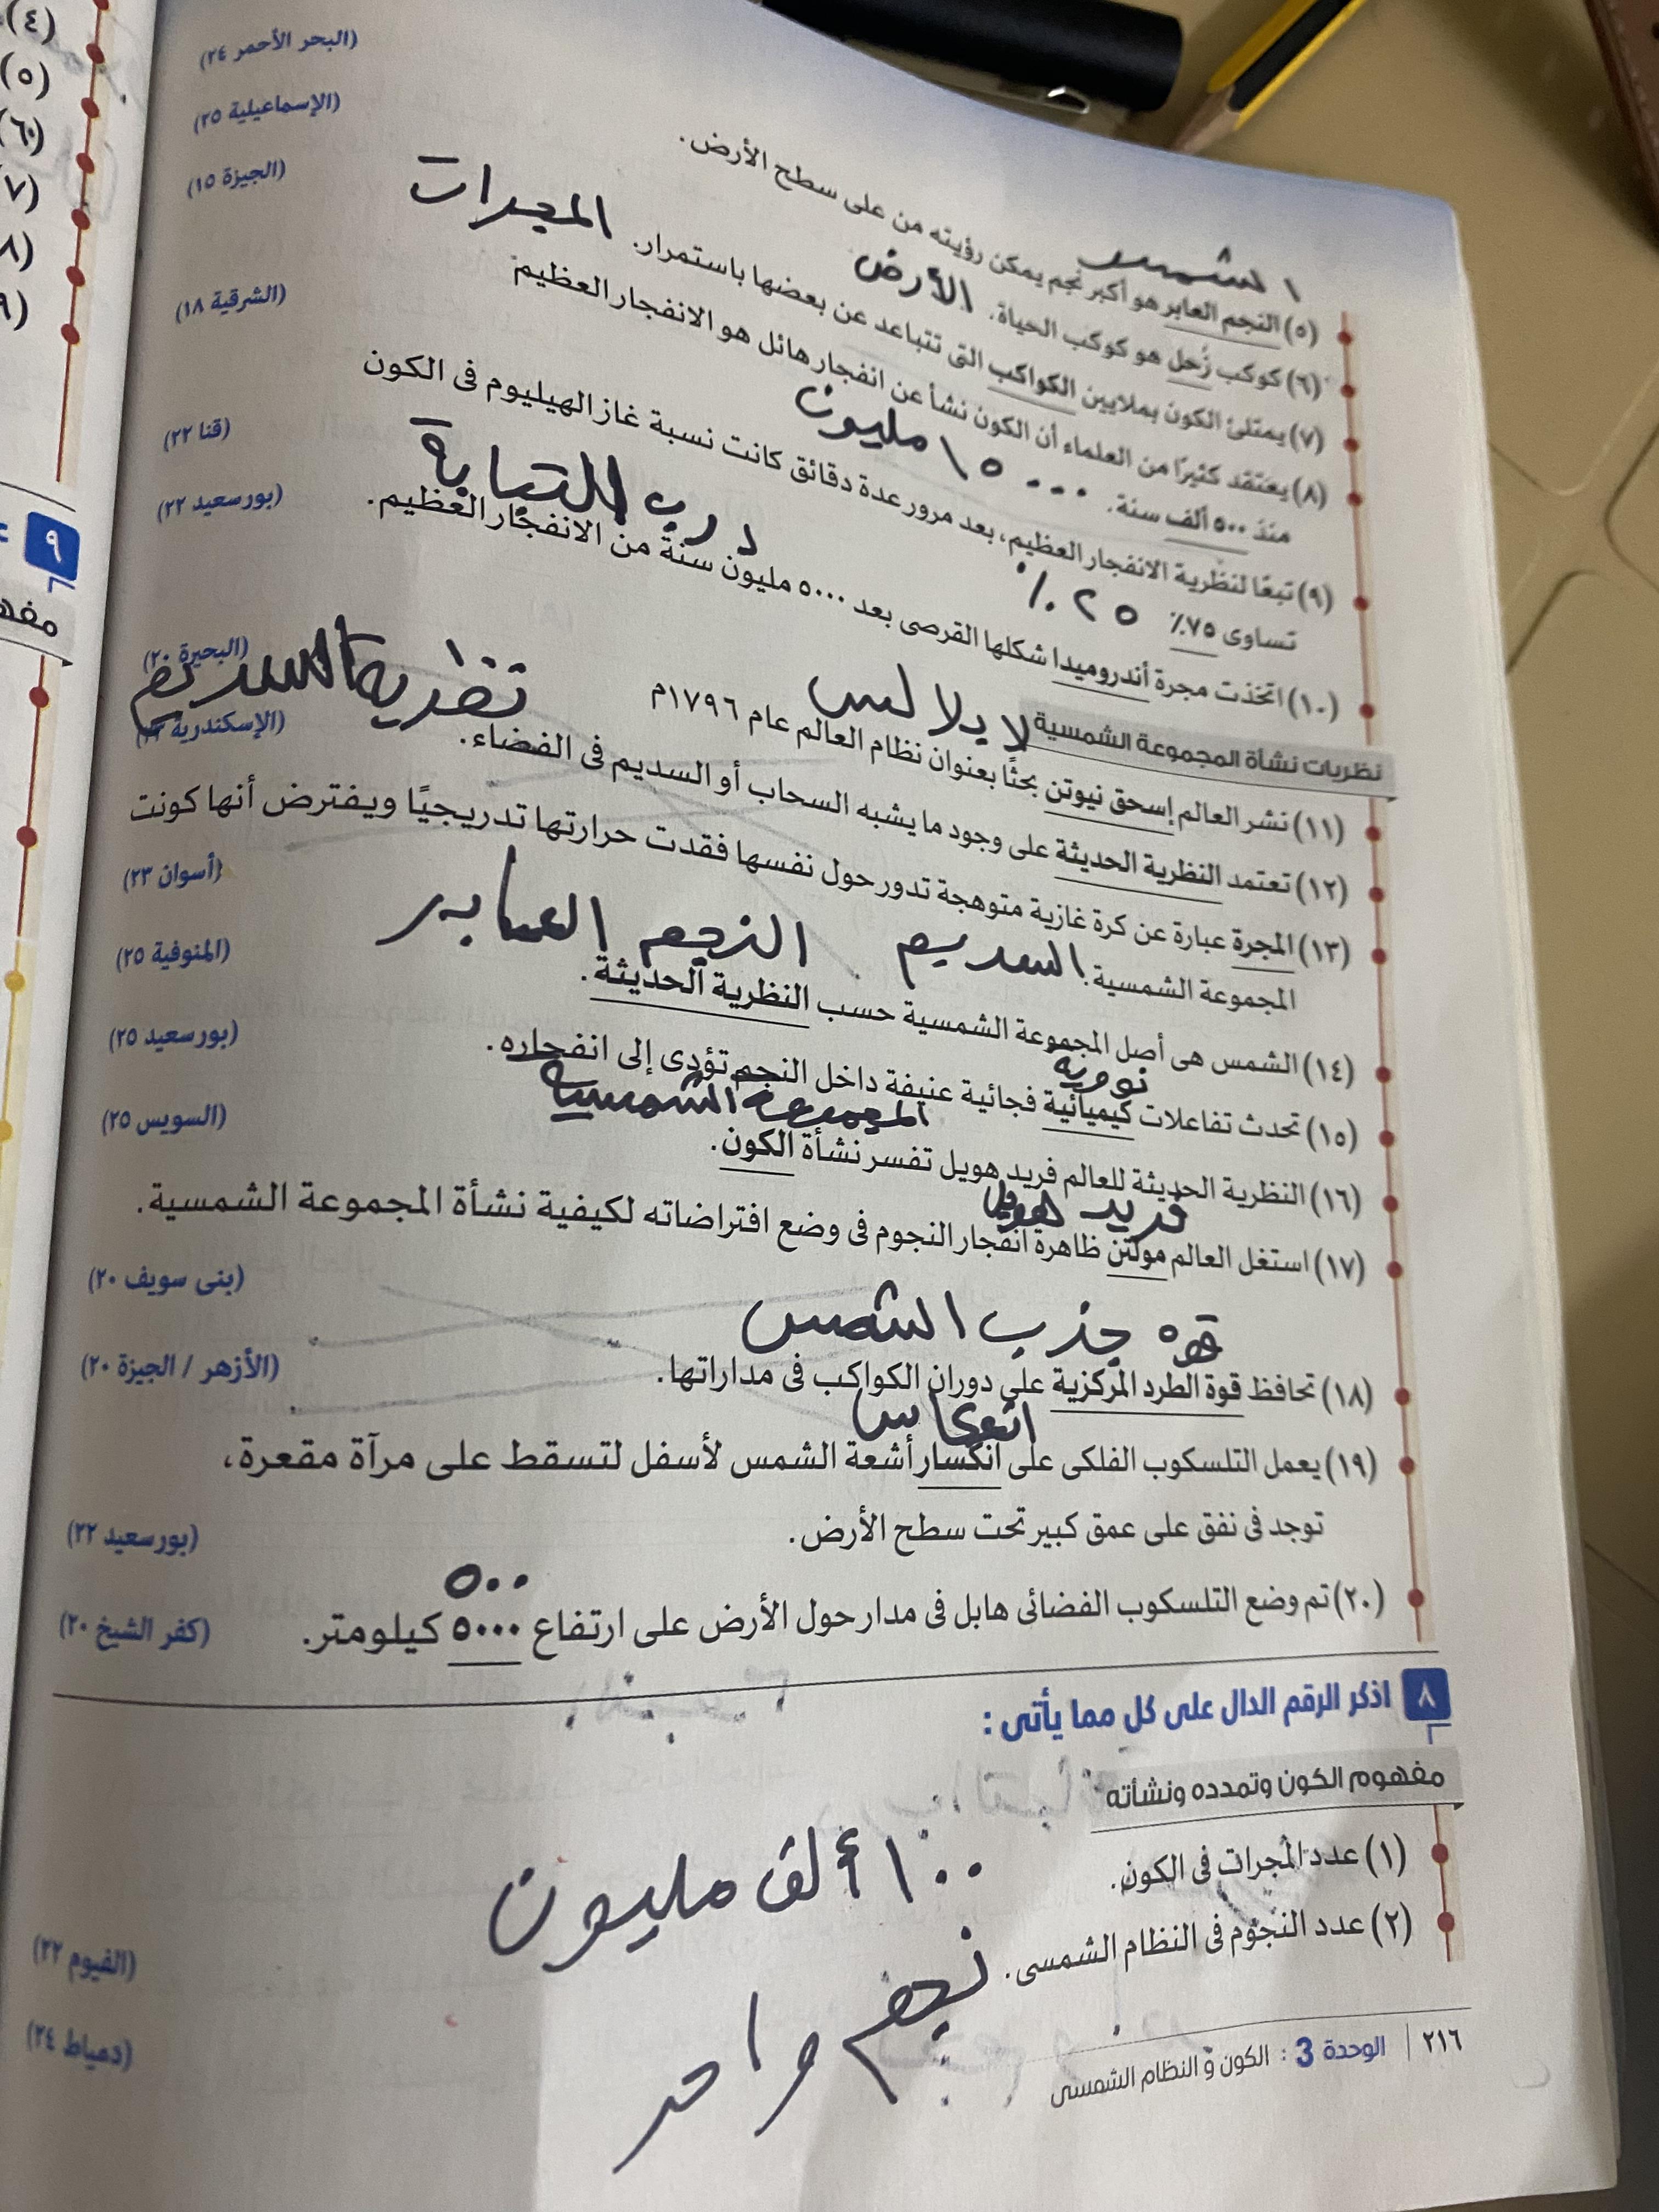 (٤)
(البحر الأحمر ٢٤)
(٥)
(الإسماعيلية ٢٥)
(٦)
(الجيزة ١٥)
(٧)
(الشرقية ١٨)
(٨)
(٩)
(قنا ٢٢)
(بورسعيد ٢٢)
٩
(البحيرة ٢٠)
(الإسكندرية
(أسوان ٢٣)
(المنوفية ٢٥)
(بورسعيد ٢٥)
(السويس ٢٥)
(بنى سويف ٢٠)
(الأزهر / الجيزة ٢٠)
(بورسعيد ٢٢)
(كفر الشيخ ٢٠)
(الفيوم ٢٢)
(دمياط ٢٤)
الشمس
(٥) النجم العابر هو أكبر نجم يمكن رؤيته من على سطح الأرض.
(٦) كوكب زُحل هو كوكب الحياة. الأرض
(٧) يمتلئ الكون بملايين الكواكب التى تتباعد عن بعضها باستمرار. المجرات
(٨) يعتقد كثيرًا من العلماء أن الكون نشأ عن انفجار هائل هو الانفجار العظيم
منذ ٥٠٠ ألف سنة. ١٥٠٠٠ مليون
(٩) تبعًا لنظرية الانفجار العظيم، بعد مرور عدة دقائق كانت نسبة غاز الهيليوم فى الكون
تساوى ٧٥٪ ٢٥٪
درب التبانة
(١٠) اتخذت مجرة أندروميدا شكلها القرصى بعد ٥٠٠٠ مليون سنة من الانفجار العظيم.
نظريات نشأة المجموعة الشمسية
لابلاس
(١١) نشر العالم إسحق نيوتن بحثًا بعنوان نظام العالم عام ١٧٩٦م
نظرية السديم
(١٢) تعتمد النظرية الحديثة على وجود ما يشبه السحاب أو السديم فى الفضاء.
(١٣) المجرة عبارة عن كرة غازية متوهجة تدور حول نفسها فقدت حرارتها تدريجيًا ويفترض أنها كونت
المجموعة الشمسية. السديم
النجم العابر
(١٤) الشمس هى أصل المجموعة الشمسية حسب النظرية الحديثة.
نووية
(١٥) تحدث تفاعلات كيميائية فجائية عنيفة داخل النجم تؤدى إلى انفجاره.
المجموعة الشمسية
(١٦) النظرية الحديثة للعالم فريد هويل تفسر نشأة الكون.
فريد هويل
(١٧) استغل العالم مولتن ظاهرة انفجار النجوم فى وضع افتراضاته لكيفية نشأة المجموعة الشمسية.
قوة جذب الشمس
(١٨) تحافظ قوة الطرد المركزية على دوران الكواكب فى مداراتها.
انعكاس
(١٩) يعمل التلسكوب الفلكى على انكسار أشعة الشمس لأسفل لتسقط على مرآة مقعرة،
توجد فى نفق على عمق كبير تحت سطح الأرض.
٥٠٠
(٢٠) تم وضع التلسكوب الفضائى هابل فى مدار حول الأرض على ارتفاع ٥٠٠٠ كيلومتر.
٨ اذكر الرقم الدال على كل مما يأتى :
مفهوم الكون وتمدده ونشأته
(١) عدد المجرات فى الكون. ١٠٠ ألف مليون
(٢) عدد النجوم فى النظام الشمسى. نجم واحد
٢١٦ | الوحدة 3 : الكون و النظام الشمسى